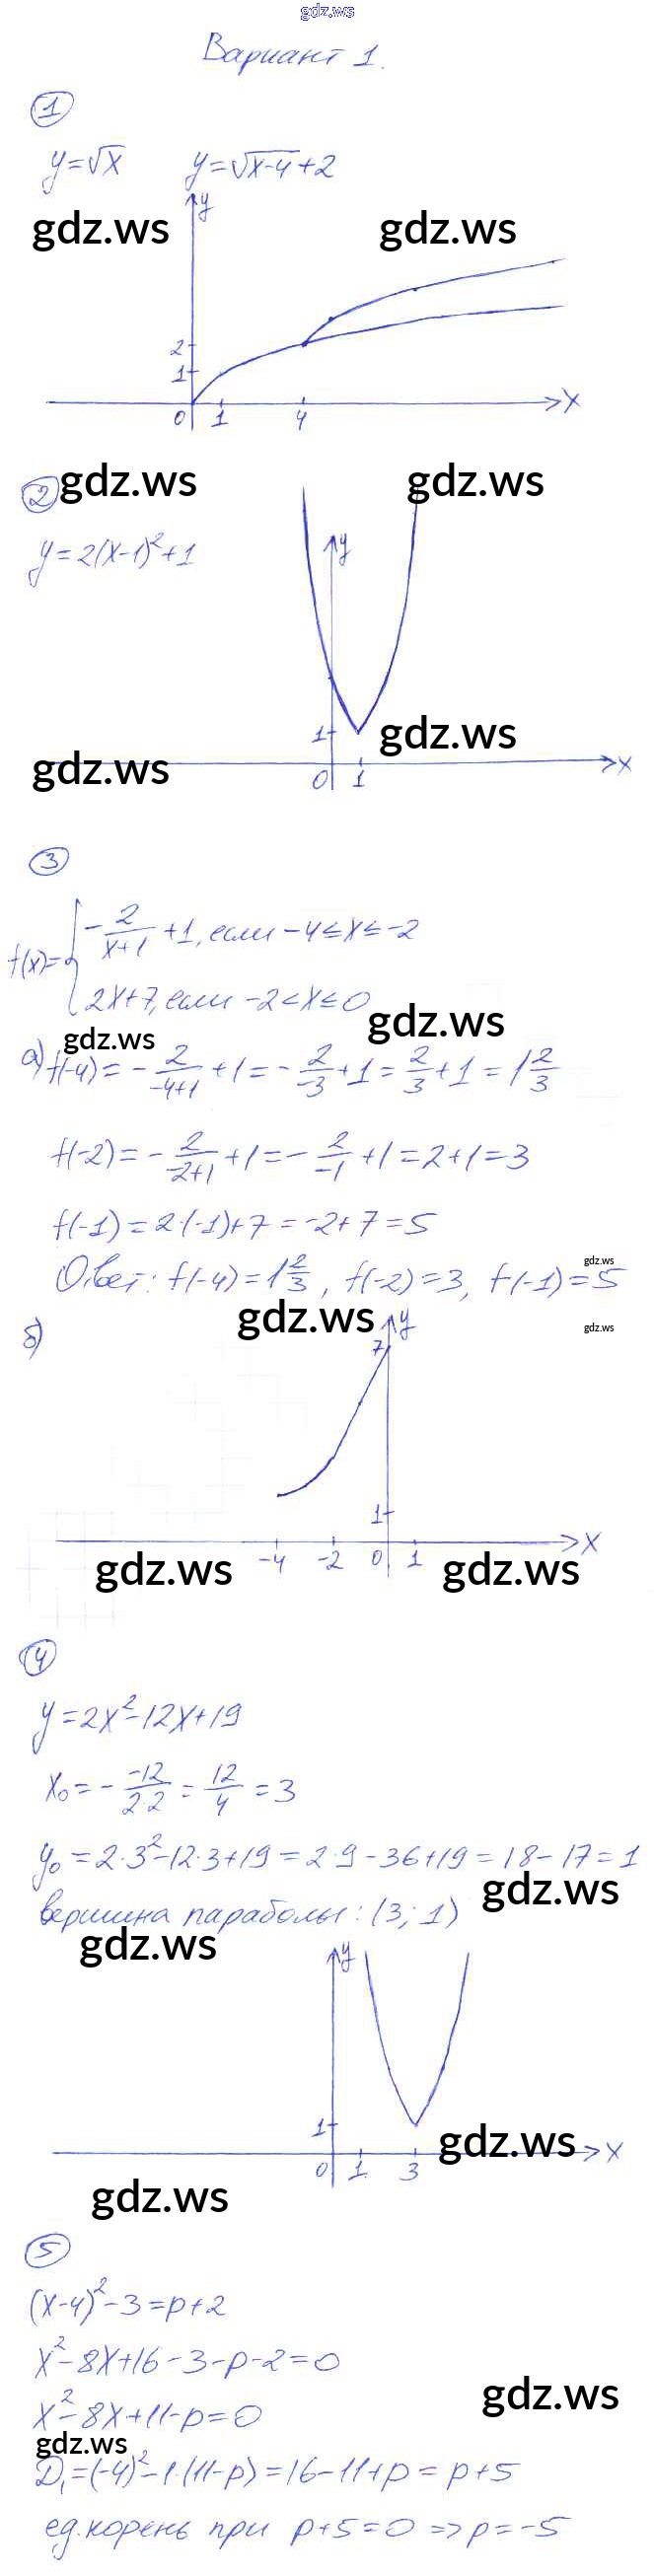 gdz.ws
Вариант 1.
1
y=√x y=√x-4+2
gdz.ws gdz.ws
y
2
1
0 1 4 x
2 gdz.ws gdz.ws
y=2(x-1)²+1
y
1 gdz.ws
gdz.ws
0 1 x
3
f(x)={ -2/(x+1) +1, если -4≤x≤-2
2x+7, если -2<x≤0
gdz.ws
gdz.ws
а) f(-4)= -2/(-4+1) +1= -2/-3 +1= 2/3 +1= 1 2/3
f(-2)= -2/(-2+1) +1= -2/-1 +1=2+1=3
f(-1)=2·(-1)+7=-2+7=5
gdz.ws
Ответ: f(-4)=1 2/3, f(-2)=3, f(-1)=5
gdz.ws gdz.ws
б)
y
7
1
-4 -2 0 1 x
gdz.ws gdz.ws
4
y=2x²-12x+19
x₀= - -12/2·2 = 12/4 =3
y₀=2·3²-12·3+19=2·9-36+19=18-17=1
gdz.ws
вершина параболы: (3; 1)
gdz.ws
y
1
gdz.ws
0 1 3 x
gdz.ws
5
(x-4)²-3=p+2
x²-8x+16-3-p-2=0
gdz.ws
x²-8x+11-p=0
gdz.ws
D₁=(-4)²-1·(11-p)=16-11+p=p+5
ед. корень при p+5=0 => p=-5